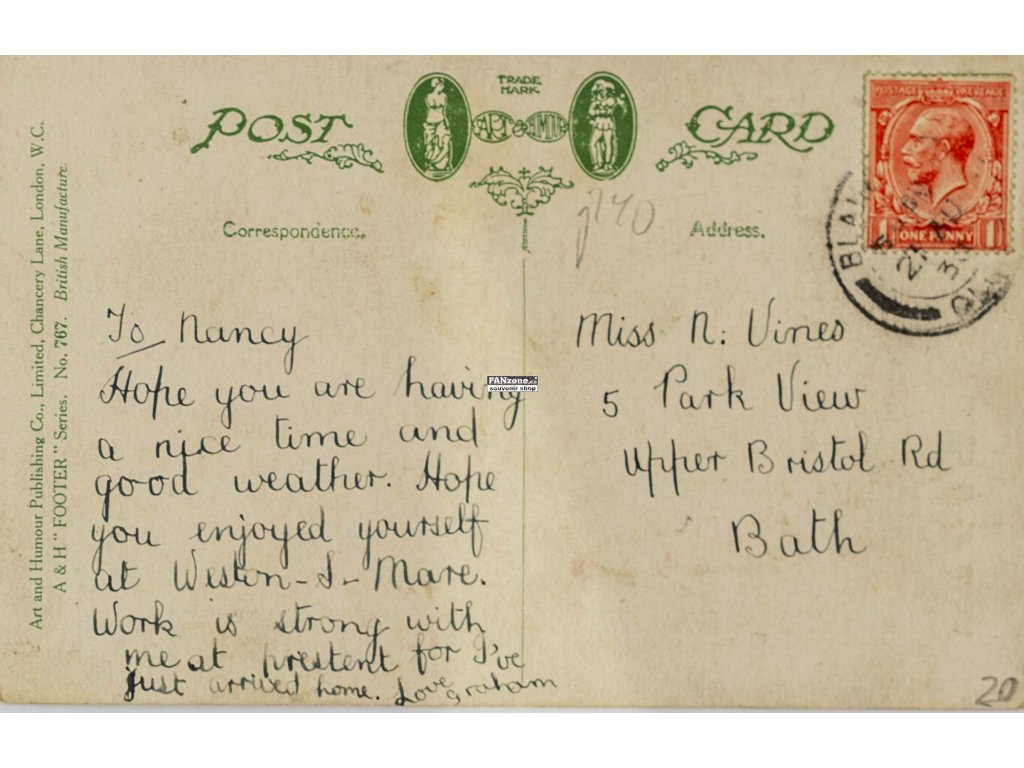 POST
TRADE
MARK
ART & HUMOUR
CARD
Correspondence.
Address.
POSTAGE REVENUE
ONE PENNY
1 1
BLA
30
Art and Humour Publishing Co., Limited, Chancery Lane, London, W.C.
A & H "FOOTER" Series. No. 767. British Manufacture
To Nancy
Hope you are having
a nice time and
good weather. Hope
you enjoyed yourself
at Weston-S-Mare.
Work is strong with
me at prestent for I've
just arrived home. Love Graham
FANzone
souvenir shop
Miss N. Vines
5 Park View
Upper Bristol Rd
Bath
20